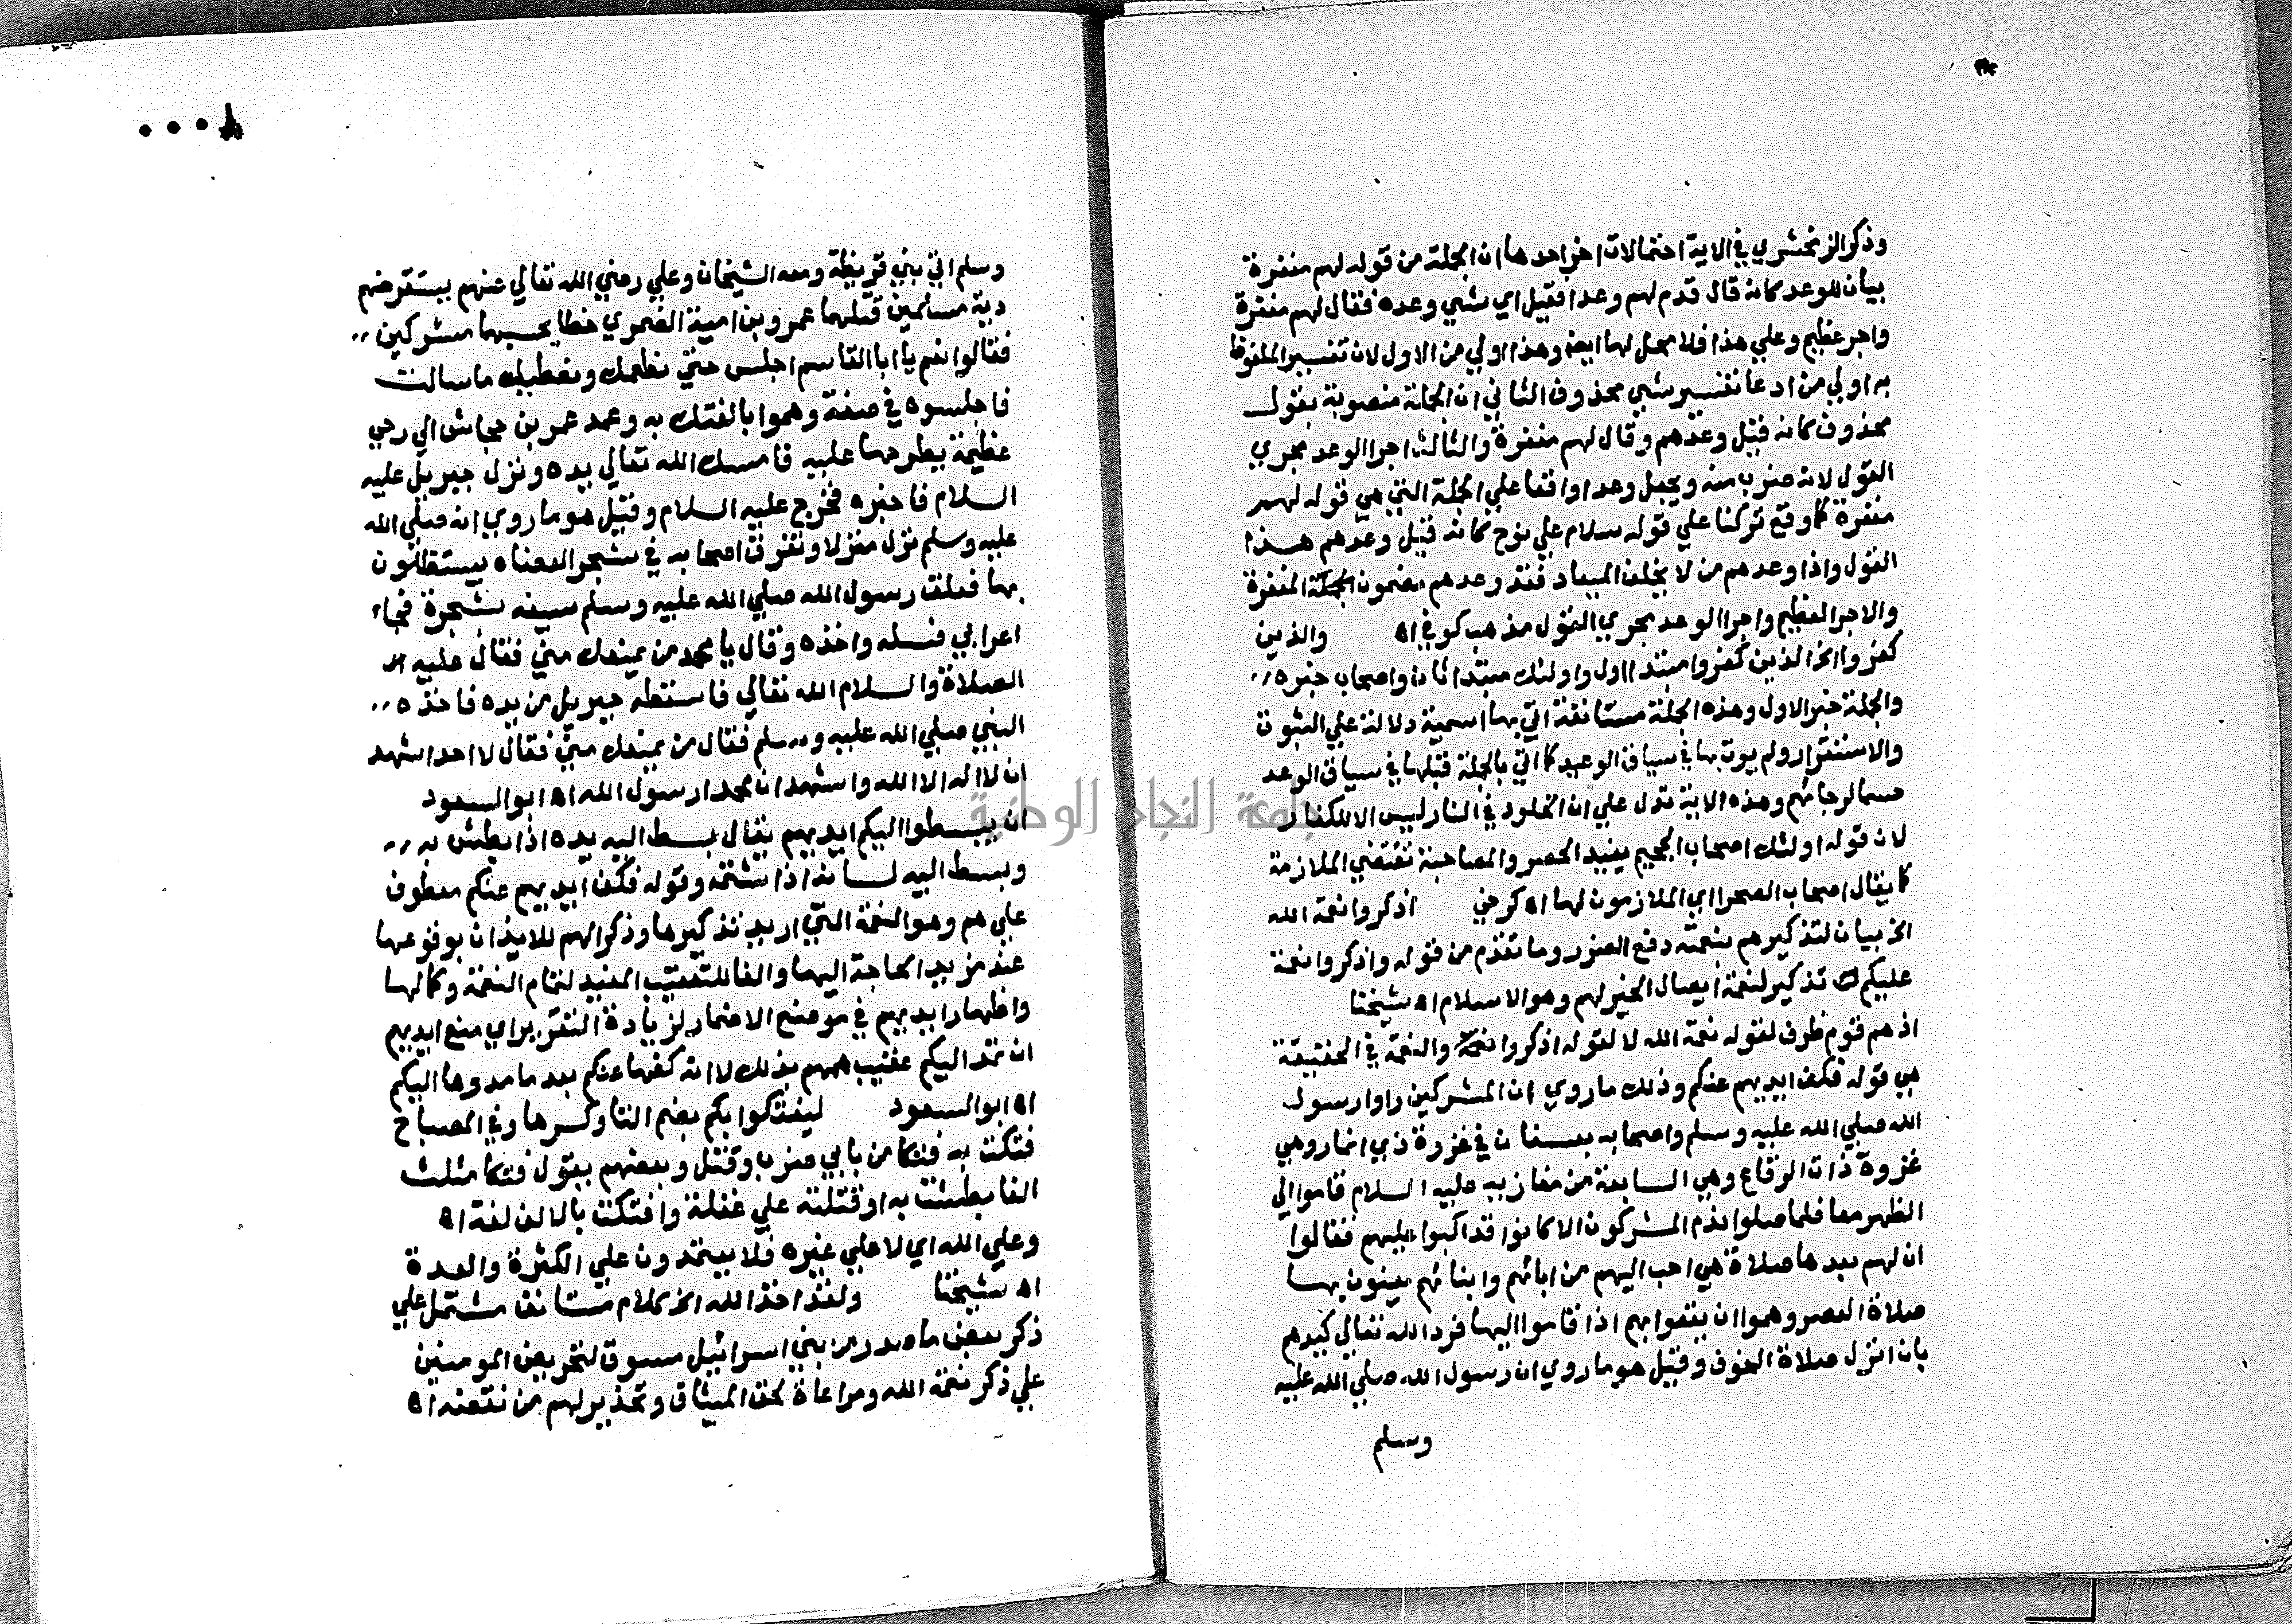 وذكر الزمخشري في الاية احتمالات اخر احدها ان الجملة من قوله لهم مغفرة
بيان للوعد كانه قال قدم لهم وعدا فقيل اي شي وعده فقال لهم مغفرة
واجر عظيم وعلي هذا فلا محل لها ايضا وهذا اولي من الاول لان تفسير الملفوظ
به اولي من ادعا تفسير شي محذوف الثاني ان الجملة منصوبة بقول
محذوف كانه قيل وعدهم وقال لهم مغفرة والثالث اجرا الوعد مجري
القول لانه ضرب منه ويجعل وعدا واقفا علي الجملة التي هي قوله لهم
مغفرة كما وقع تركنا علي قوله سلام علي نوح كانه قيل وعدهم هذا
القول واذا وعدهم من لا يخلف الميعاد فقد وعدهم مضمون الجملة المغفرة
والاجر العظيم واجرا الوعد مجري القول مذهب كوفي اه والذين
كفروا الخ الذين كفروا مبتدا اول واولئك مبتدا ثان واصحاب خبره
والجملة خبر الاول وهذه الجملة مستانفة اتي بها اسمية دلالة علي الثبوت
والاستقرار ولم يوت بها في سياق الوعيد كما اتي بالجملة قبلها في سياق الوعد
حسما لرجائهم وهذه الاية تدل علي ان الخلود في النار ليس الا للكفار
لان قوله اولئك اصحاب الجحيم يفيد الحصر والمصاحبة تقتضي الملازمة
كما يقال اصحاب الصحرا اي الملازمون لها اه كرخي اذكروا نعمة الله
الخ بيان لتذكيرهم بنعمته دفع الضرر وما تقدم من قوله واذكروا نعمة
عليكم تذكير لنعمة ايصال الخير لهم وهو الاسلام اه شيخنا
اذ هم قوم ظرف لقوله نعمة الله لا لقوله اذكروا نعمة والنعمة في الحقيقة
هي قوله فكف ايديهم عنكم وذلك ما روي ان المشركين راوا رسول
الله صلي الله عليه وسلم واصحابه بعسفان في غزوة ذي انمار وهي
غزوة ذات الرقاع وهي السابعة من مغازيه عليه السلام قاموا الي
الظهر معا فلما صلوا ندم المشركون الا كانوا قد اكبوا عليهم فقالوا
ان لهم بعدها صلاة هي احب اليهم من ابائهم وابنائهم يعنون بها
صلاة العصر وهموا ان يقعوا بهم اذا قاموا اليها فرد الله تعالي كيدهم
بان انزل صلاة الخوف وقيل هو ما روي ان رسول الله صلي الله عليه
وسلم
وسلم اتي بني قريظة ومعه الشيخان وعلي رضي الله تعالي عنهم يستقرضهم
دية مسلمين قتلهما عمرو بن امية الضمري خطا يحسبهما مشركين
فقالوا نعم يا ابا القاسم اجلس حتي نطعمك ونعطيك ما سالت
فاجلسوه في صفة وهموا بالفتك به وعمد عمر بن جحاش الي رحي
عظيمة يطرحها عليه فامسك الله تعالي يده ونزل جبريل عليه
السلام فاخبره فخرج عليه السلام وقيل هو ما روي انه صلي الله
عليه وسلم نزل منزلا وتفرق اصحابه في شجر العضاه يستظلون
بها فعلق رسول الله صلي الله عليه وسلم سيفه بشجرة فجاء
اعرابي فسله واخذه وقال يا محمد من يمنعك مني فقال عليه
الصلاة والسلام الله تعالي فاسقطه جبريل من يده فاخذه
النبي صلي الله عليه وسلم فقال من يمنعك مني فقال لا احد اشهد
ان لا اله الا الله واشهد ان محمدا رسول الله اه ابو السعود
ان يبسطوا اليكم ايديهم يقال بسط اليه يده اذا بطش به
وبسط اليه لسانه اذا شتمه وقوله فكف ايديهم عنكم معطوف
علي هم وهو النعمة التي اريد تذكيرها وذكر الهم للايذان بوقوعها
عند مزيد الحاجة اليها والفا للتعقيب المفيد لتمام النعمة وكمالها
واظهار ايديهم في موضع الاضمار لزيادة التقرير اي منع ايديهم
ان تمد اليكم عقيب همهم بذلك لا انه كفها عنكم بعد ما مدوها اليكم
اه ابو السعود ليفتكوا بكم بضم التا وكسرها وفي المصباح
فتكت به فتكا من بابي ضرب وقتل وبعضهم يقول فتكا مثلث
الفا بطشت به او قتلته علي غفلة وافتكت بالالف لغة اه
وعلي الله اي لا علي غيره فلا يعتمدون علي الكثرة والعدة
اه شيخنا ولقد اخذ الله الخ كلام مستانف مشتمل علي
ذكر بعض ما صدر من بني اسرائيل مسوق لتحريض المومنين
علي ذكر نعمة الله ومراعاة لحق الميثاق وتحذير لهم من نقضه اه
جامعة النجاح الوطنية